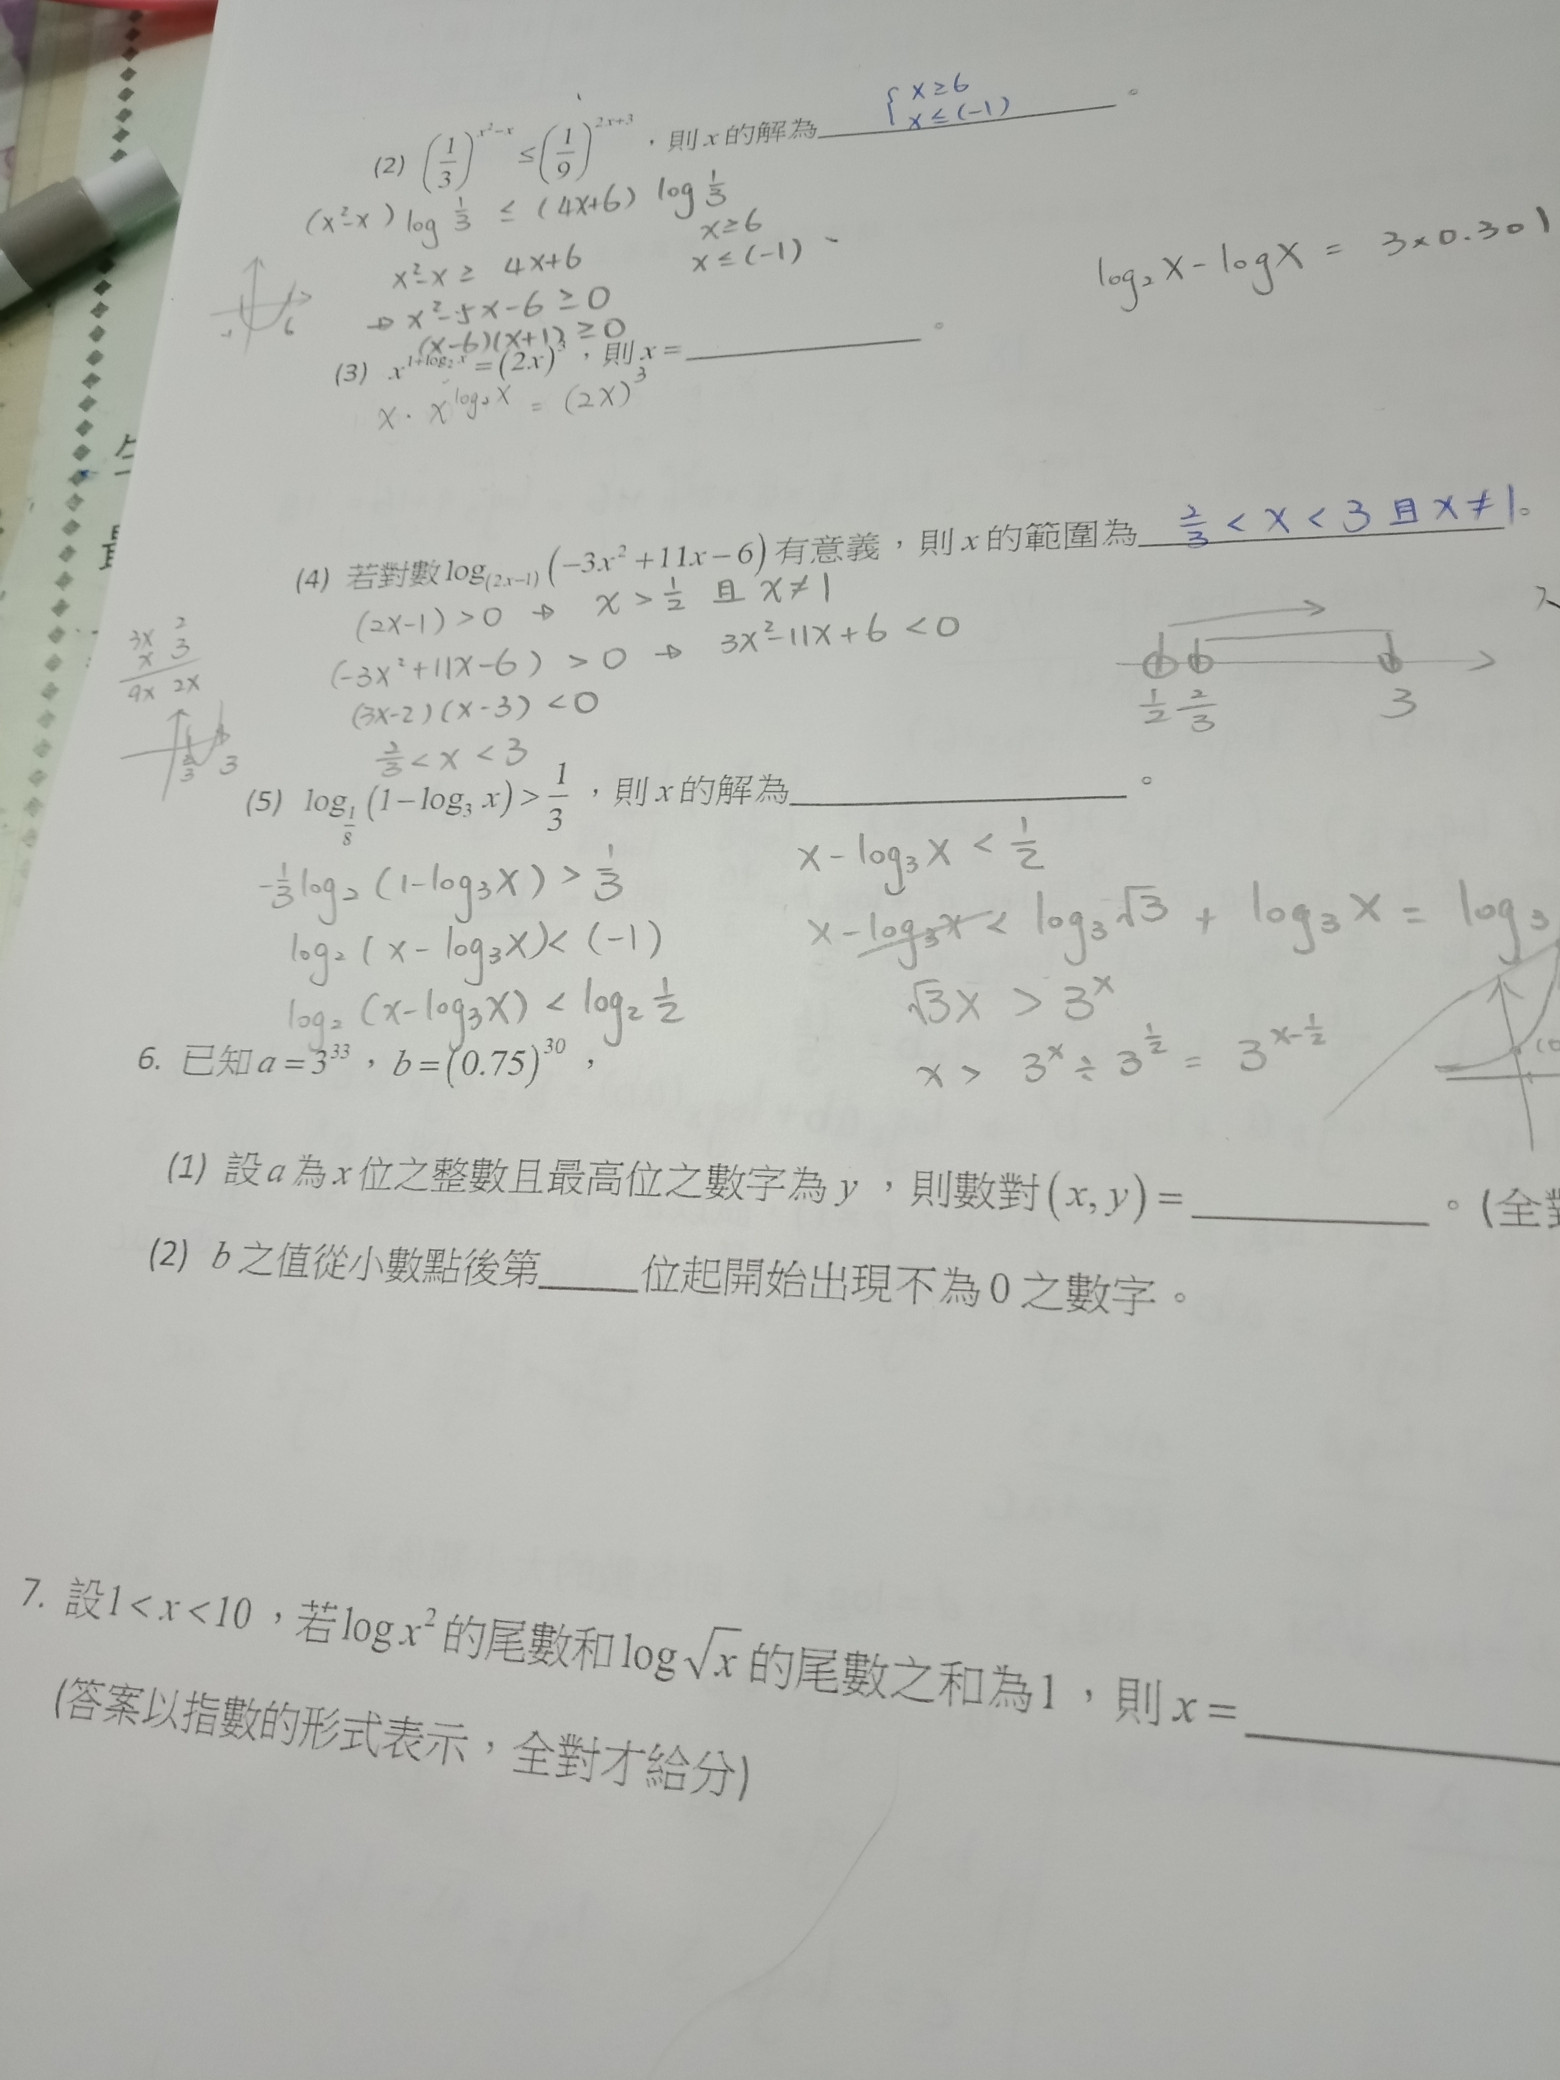 (2) (1/3)^(x²-x) ≤ (1/9)^(2x+3)，則x的解為 { x≥6 x≤(-1) 。
(x²-x) log 1/3 ≤ (4x+6) log 1/3
x²-x ≥ 4x+6
→ x²-5x-6 ≥ 0
(x-6)(x+1) ≥ 0
x≥6
x≤(-1)
-1 6
log₂x - logx = 3×0.301
(3) x^(1+log₂x) = (2x)³，則x=________。
x · x^(log₂x) = (2x)³
(4) 若對數log_(2x-1)(-3x²+11x-6)有意義，則x的範圍為 2/3 < x < 3 且 x≠1。
(2x-1)>0 → x > 1/2 且 x≠1
(-3x²+11x-6) > 0 → 3x²-11x+6 < 0
(3x-2)(x-3) < 0
2/3 < x < 3
3x 2
x 3
9x 2x
2/3 3
1/2 2/3 3
(5) log_(1/8)(1-log₃x) > 1/3，則x的解為________。
-1/3 log₂(1-log₃x) > 1/3
log₂(x-log₃x) < (-1)
log₂(x-log₃x) < log₂ 1/2
x-log₃x < 1/2
x-log₃x < log₃√3 + log₃x = log₃
√3x > 3^x
x > 3^x ÷ 3^(1/2) = 3^(x-1/2)
6. 已知a=3³³，b=(0.75)³⁰，
(1) 設a為x位之整數且最高位之數字為y，則數對(x,y)=________。(全對
(2) b之值從小數點後第____位起開始出現不為0之數字。
7. 設1<x<10，若logx²的尾數和log√x的尾數之和為1，則x=________
(答案以指數的形式表示，全對才給分)